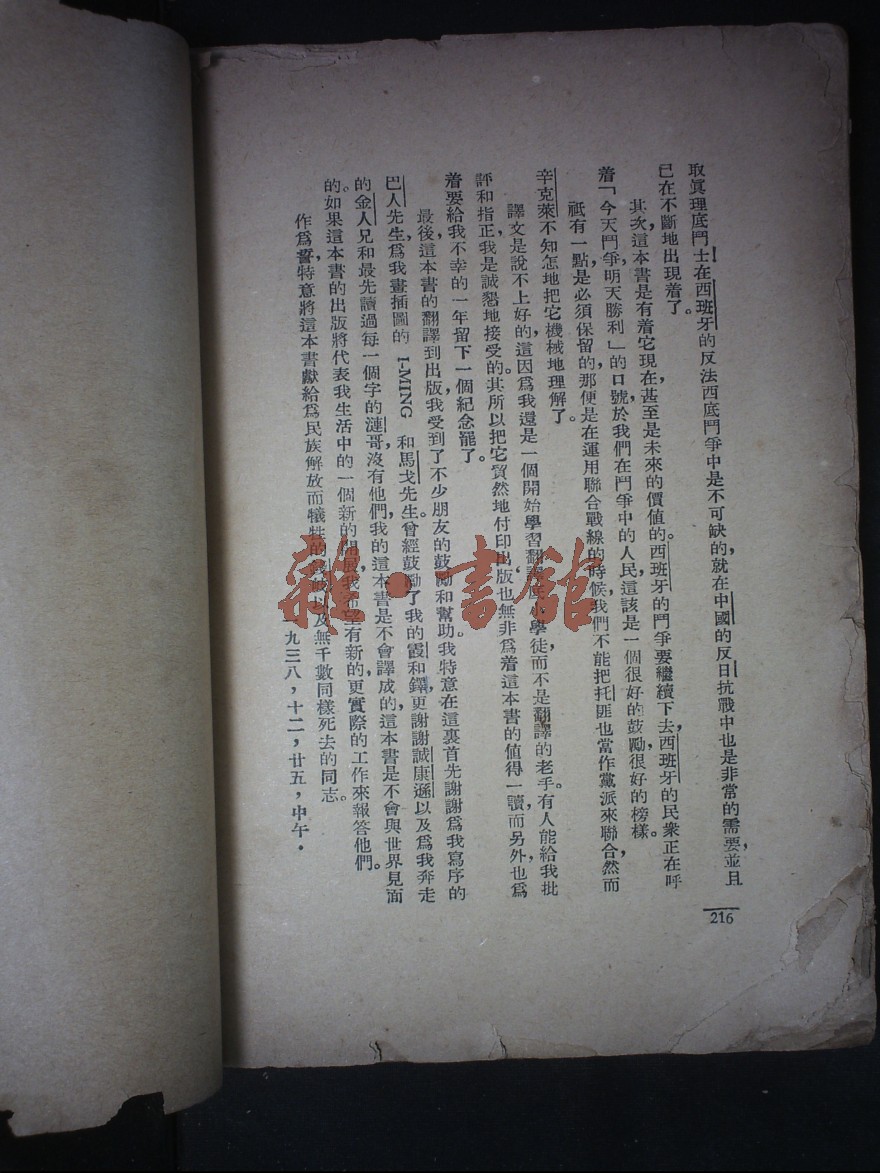 取眞理底鬥士在西班牙的反法西底鬥爭中是不可缺的，就在中國的反日抗戰中也是非常的需要，並且
已在不斷地出現着了。
其次，這本書是有着它現在，甚至是未來的價値的。西班牙的鬥爭要繼續下去，西班牙的民衆正在呼
着「今天鬥爭，明天勝利」的口號，於我們在鬥爭中的人民，這該是一個很好的鼓勵，很好的榜樣。
祇有一點是必須保留的，那便是在運用聯合戰線的時候，我們不能把托匪也當作黨派來聯合，然而
辛克萊不知怎地把它機械地理解了。
譯文是說不上好的，這因爲我還是一個開始學習翻譯底小學徒，而不是翻譯的老手。有人能給我批
評和指正，我是誠懇地接受的。其所以把它貿然地付印出版，也無非爲着這本書的値得一讀，而另外也爲
着要給我不幸的一年留下一個紀念罷了。
最後，這本書的翻譯到出版，我受到了不少朋友的鼓勵和幫助。我特意在這裏首先謝謝爲我寫序的
巴人先生，爲我畫插圖的 I-MING 和馬戈先生。曾經鼓勵了我的霞和鐸，更謝謝誠康遜以及爲我奔走
的金人兄和最先讀過每一個字的漣哥，沒有他們，我的這本書是不會譯成的，這本書是不會與世界見面
的。如果這本書的出版將代表我生活中的一個新的開展，我希望有新的，更實際的工作來報答他們。
作爲誓，特意將這本書獻給爲民族解放而犧牲的 以及無千數同樣死去的同志。
一九三八，十二，廿五，中午．
216
雜·書館